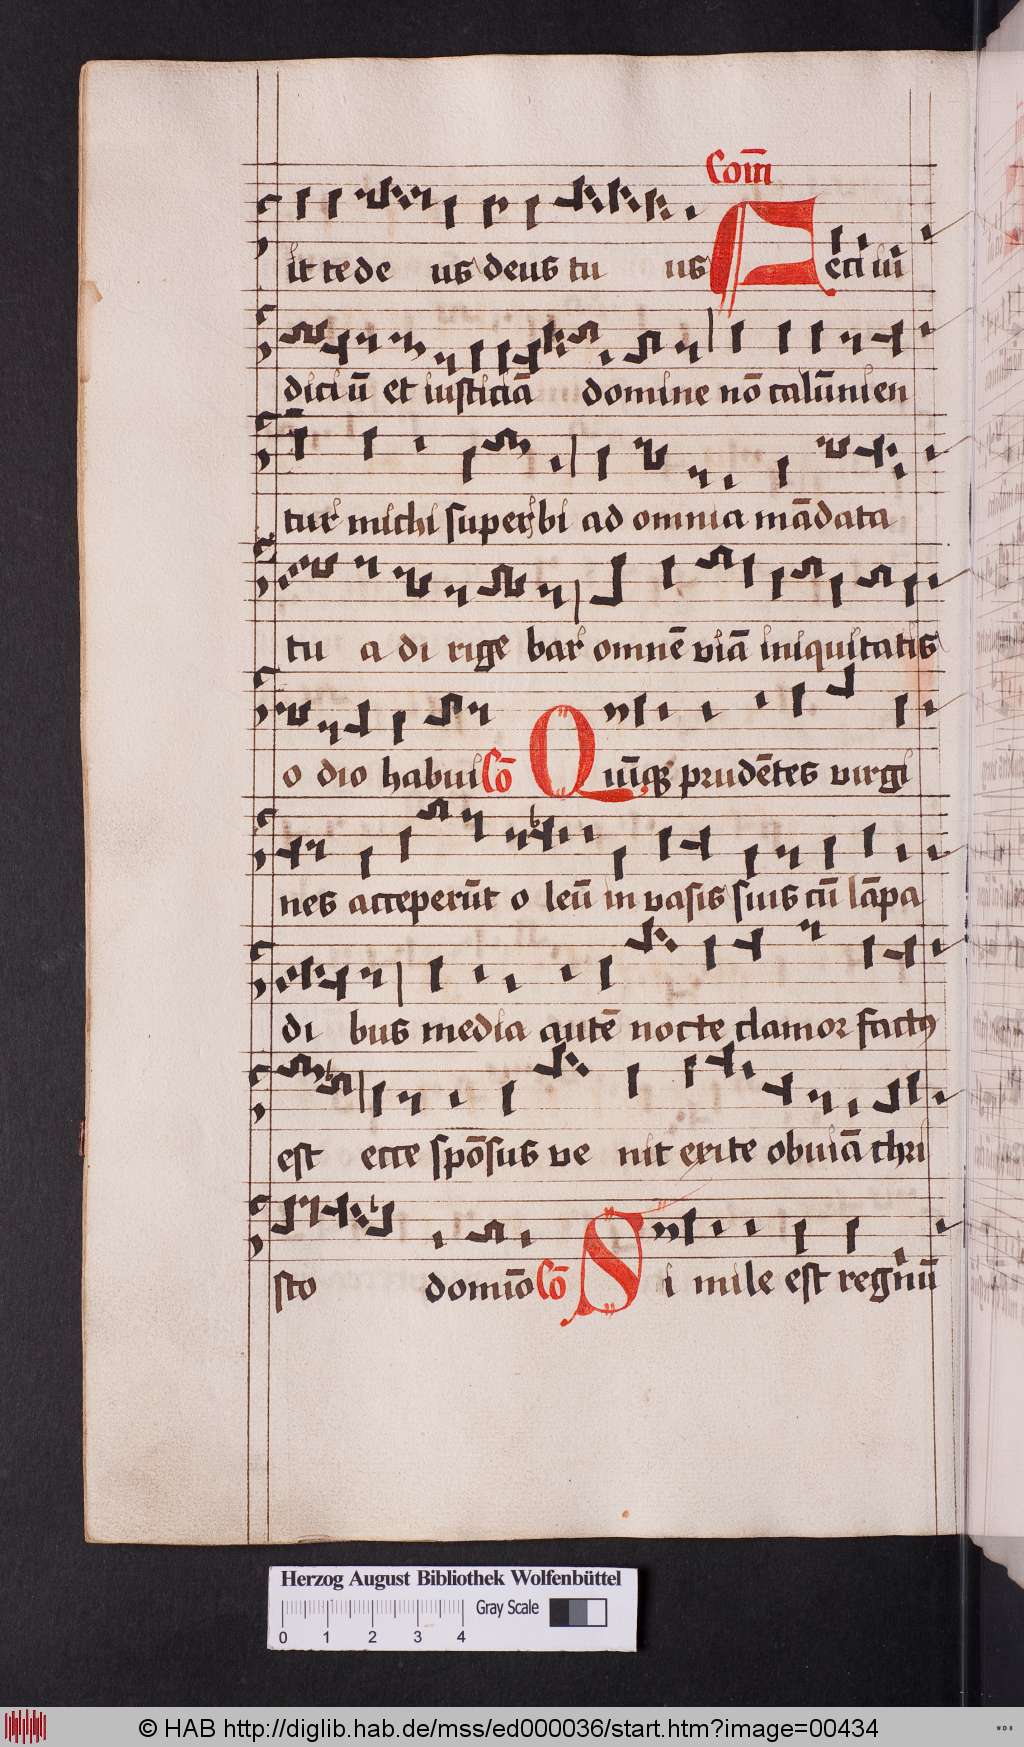 Com̄
it te de us deus tu us Feci iu
diciū et iusticiā domine nō calūnien
tur michi superbi ad omnia mādata
tu a di rige bar omnē viā iniquitatis
o dio habui Cō Quīqꝫ prudētes virgi
nes acceperūt o leū in vasis suis cū lāpa
di bus media autē nocte clamor factꝰ
est ecce spōsus ve nit exite obuiā chri
sto domīo Cō Si mile est regnū
Herzog August Bibliothek Wolfenbüttel
Gray Scale
0 1 2 3 4
© HAB http://diglib.hab.de/mss/ed000036/start.htm?image=00434